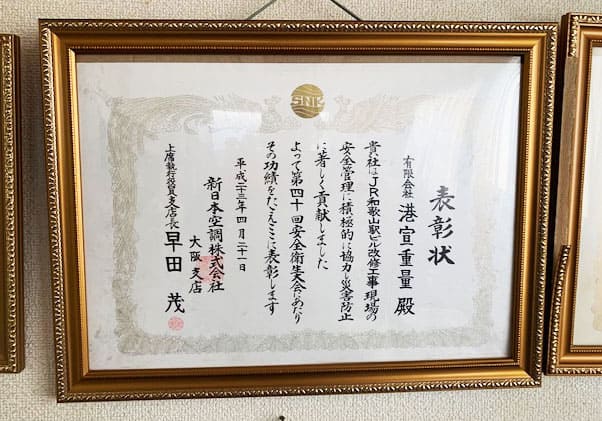 SNK
表彰状
有限会社 港宣重量 殿
貴社はJR和歌山駅ビル改修工事現場の
安全管理に積極的に協力し災害防止
に著しく貢献しました
よって第四十回安全衛生大会にあたり
その功績をたたえここに表彰します
平成二十三年四月二十一日
新日本空調株式会社
大阪支店
上席執行役員支店長 早田 茂